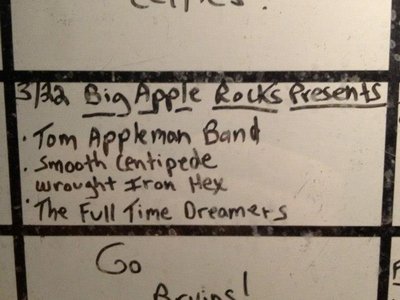 Celtics!
3/22 Big Apple Rocks Presents
· Tom Appleman Band
· Smooth Centipede
Wrought Iron Hex
· The Full Time Dreamers
Go
Bruins!